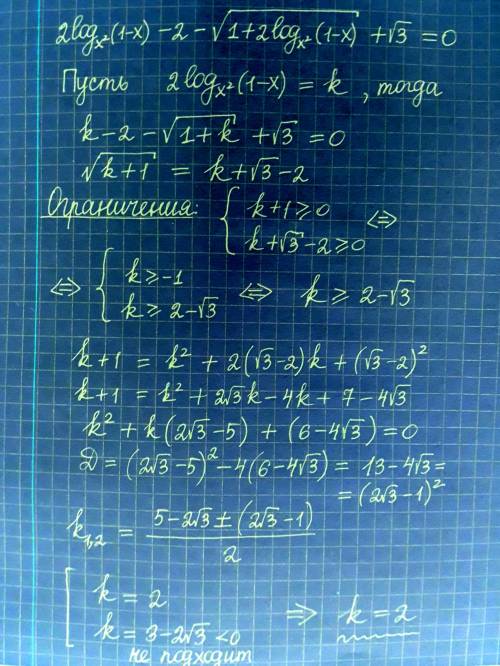 2log_{x²}(1-x) - 2 - √(1+2log_{x²}(1-x)) + √3 = 0
Пусть 2log_{x²}(1-x) = k, тогда
k - 2 - √(1+k) + √3 = 0
√(k+1) = k + √3 - 2
Ограничения: { k+1 ≥ 0
k+√3-2 ≥ 0 ⇔
⇔ { k ≥ -1
k ≥ 2-√3 ⇔ k ≥ 2-√3
k+1 = k² + 2(√3-2)k + (√3-2)²
k+1 = k² + 2√3k - 4k + 7 - 4√3
k² + k(2√3-5) + (6-4√3) = 0
D = (2√3-5)² - 4(6-4√3) = 13-4√3 =
= (2√3-1)²
k_{1,2} = (5-2√3 ± (2√3-1))/2
[ k = 2
k = 3-2√3 < 0 ⇒ k = 2
не подходит